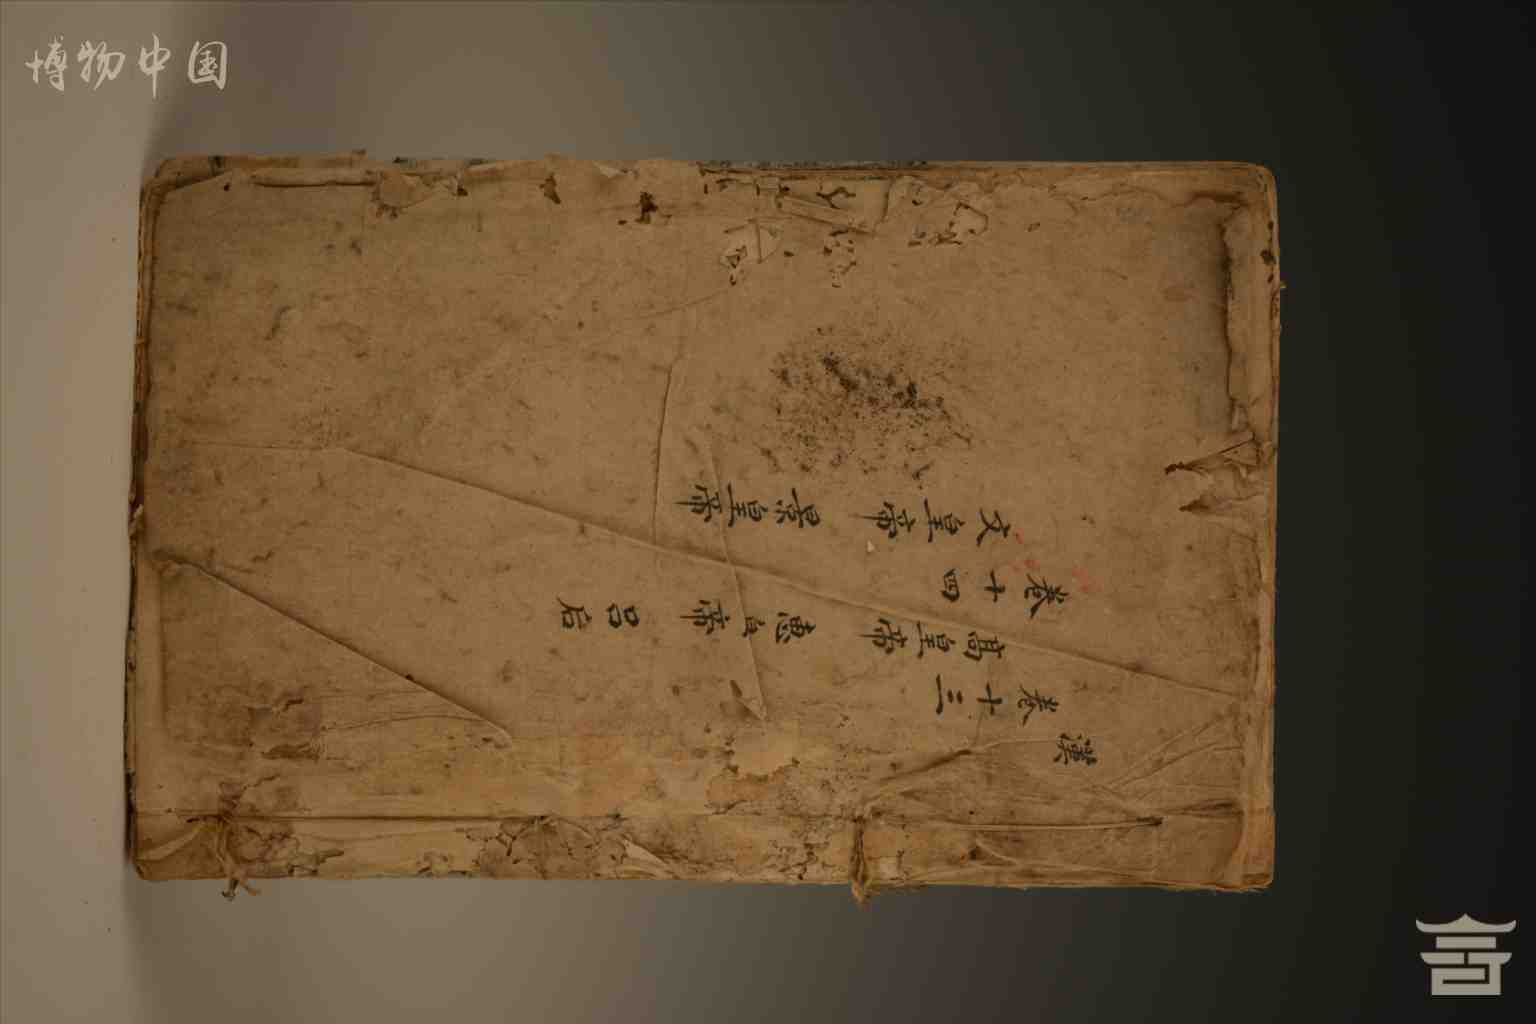 博物中国
漢
卷十三
高皇帝 惠皇帝 呂后
卷十四
文皇帝 景皇帝